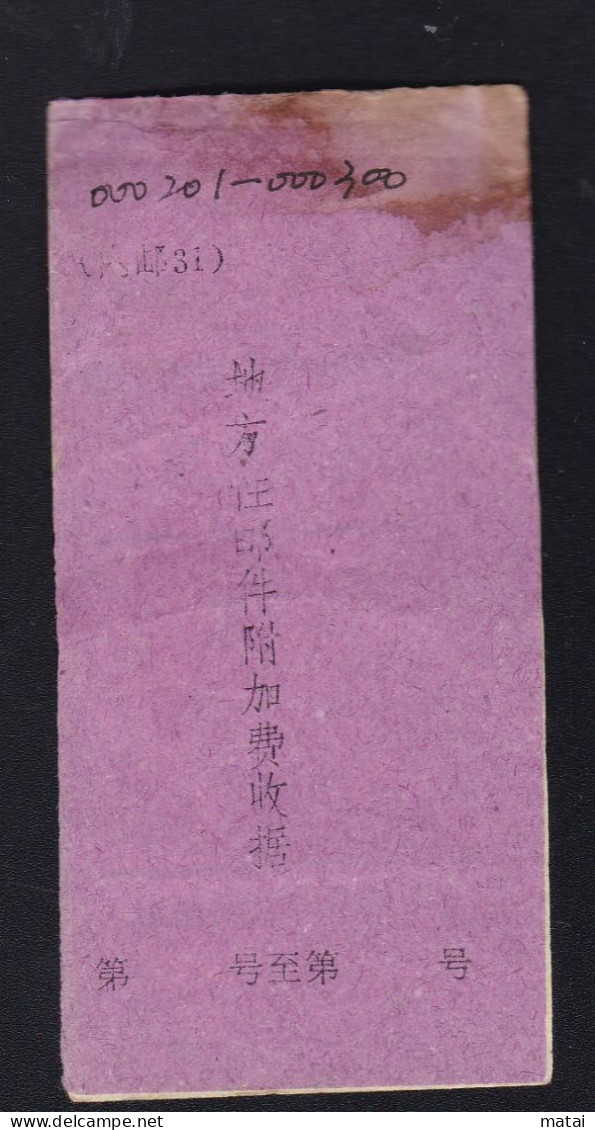 000201-000300
(内邮31)
地方性邮件附加费收据
第 号至第 号
© delcampe.net
matai